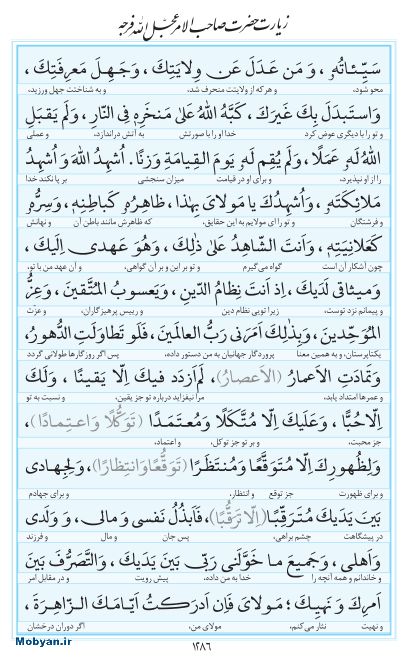 زیارت حضرت صاحب الامر عجل الله فرجه
سَيِّـئاتُهُ ، وَ مَن عَدَلَ عَن وِلايَتِكَ ، وَجَهِلَ مَعرِفَتَكَ ،
محو شود، و هر که از ولایتت منحرف شد، و به شناختت جهل ورزید،
وَاستَبدَلَ بِكَ غَيرَكَ ، كَبَّهُ اللهُ عَلىٰ مَنخَرِهِ فِى النّارِ ، وَلَم يَقبَلِ
و تو را با دیگری عوض کرد خدا او را با صورتش به آتش دراندازد، و عملی
اللهُ لَهُ عَمَلًا ، وَلَم يُقِم لَهُ يَومَ القِيامَةِ وَزنًا . اُشهِدُ اللهَ وَ اُشهِدُ
را از او نپذیرد، و برای او در قیامت میزان سنجشی بر پا نکند خدا
مَلائِكَتَهُ ، وَاُشهِدُكَ يا مَولاىَ بِهٰذا ، ظاهِرُهُ كَباطِنِهِ ، وَسِرُّهُ
و فرشتگان و تو را ای مولایم به این حقایق، که ظاهرش مانند باطن آن و نهانش
كَعَلانِيَتِهِ ، وَاَنتَ الشّاهِدُ عَلىٰ ذٰلِكَ ، وَهُوَ عَهدى اِلَيكَ ،
چون آشکار آن است گواه می‌گیرم و تو بر این و بر آن گواهی، و آن عهد من با تو،
وَميثاقى لَدَيكَ ، اِذ اَنتَ نِظامُ الدّينِ ، وَيَعسوبُ المُتَّقينَ ، وَعِزُّ
و پیمانم نزد توست، زیرا تویی نظام دین و رییس پرهیزگاران، و عزت
المُوَحِّدينَ ، وَبِذٰلِكَ اَمَرَنى رَبُّ العالَمينَ ، فَلَو تَطاوَلَتِ الدُّهورُ ،
یکتاپرستان، و به همین معنا پروردگار جهانیان به من دستور داده، پس اگر روزگارها طولانی گردد
وَ تَمادَتِ الاَعمارُ (الاَعصارُ) ، لَم اَزدَد فيكَ اِلّا يَقينًا ، وَ لَكَ
و عمرها امتداد یابد، مرا نیفزاید درباره تو جز یقین، و نسبت به تو
اِلّا حُبًّا ، وَ عَلَيكَ اِلّا مُتَّكَلًا وَ مُعتَمَدًا (تَوَكُّلًا وَ اعتِمادًا) ،
جز محبت، و بر تو جز توکل، و اعتماد،
وَ لِظُهورِكَ اِلّا مُتَوَقَّعًا وَ مُنتَظَرًا (تَوَقُّعًا وَ انتِظارًا) ، وَ لِجِهادى
و برای ظهورت جز توقع و انتظار، و برای جهادم
بَينَ يَدَيكَ مُتَرَقَّبًا (اِلّا تَرَقُّبًا) ، فَاَبذُلُ نَفسى وَ مالى ، وَ وَلَدى
در پیشگاهت چشم براهی، پس جان و مال و فرزند
وَ اَهلى ، وَ جَميعَ ما خَوَّلَنى رَبّى بَينَ يَدَيكَ ، وَالتَّصَرُّفَ بَينَ
و خاندانم و همه آنچه را خدا به من داده، پیش رویت و در مقابل امر
اَمرِكَ وَ نَهيِكَ ؛ مَولاىَ فَاِن اَدرَكتُ اَيّامَكَ الزّاهِرَةَ ،
و نهیت نثار می‌کنم، مولای من، اگر دوران درخشان
۱۲۸۶
Mobyan.ir